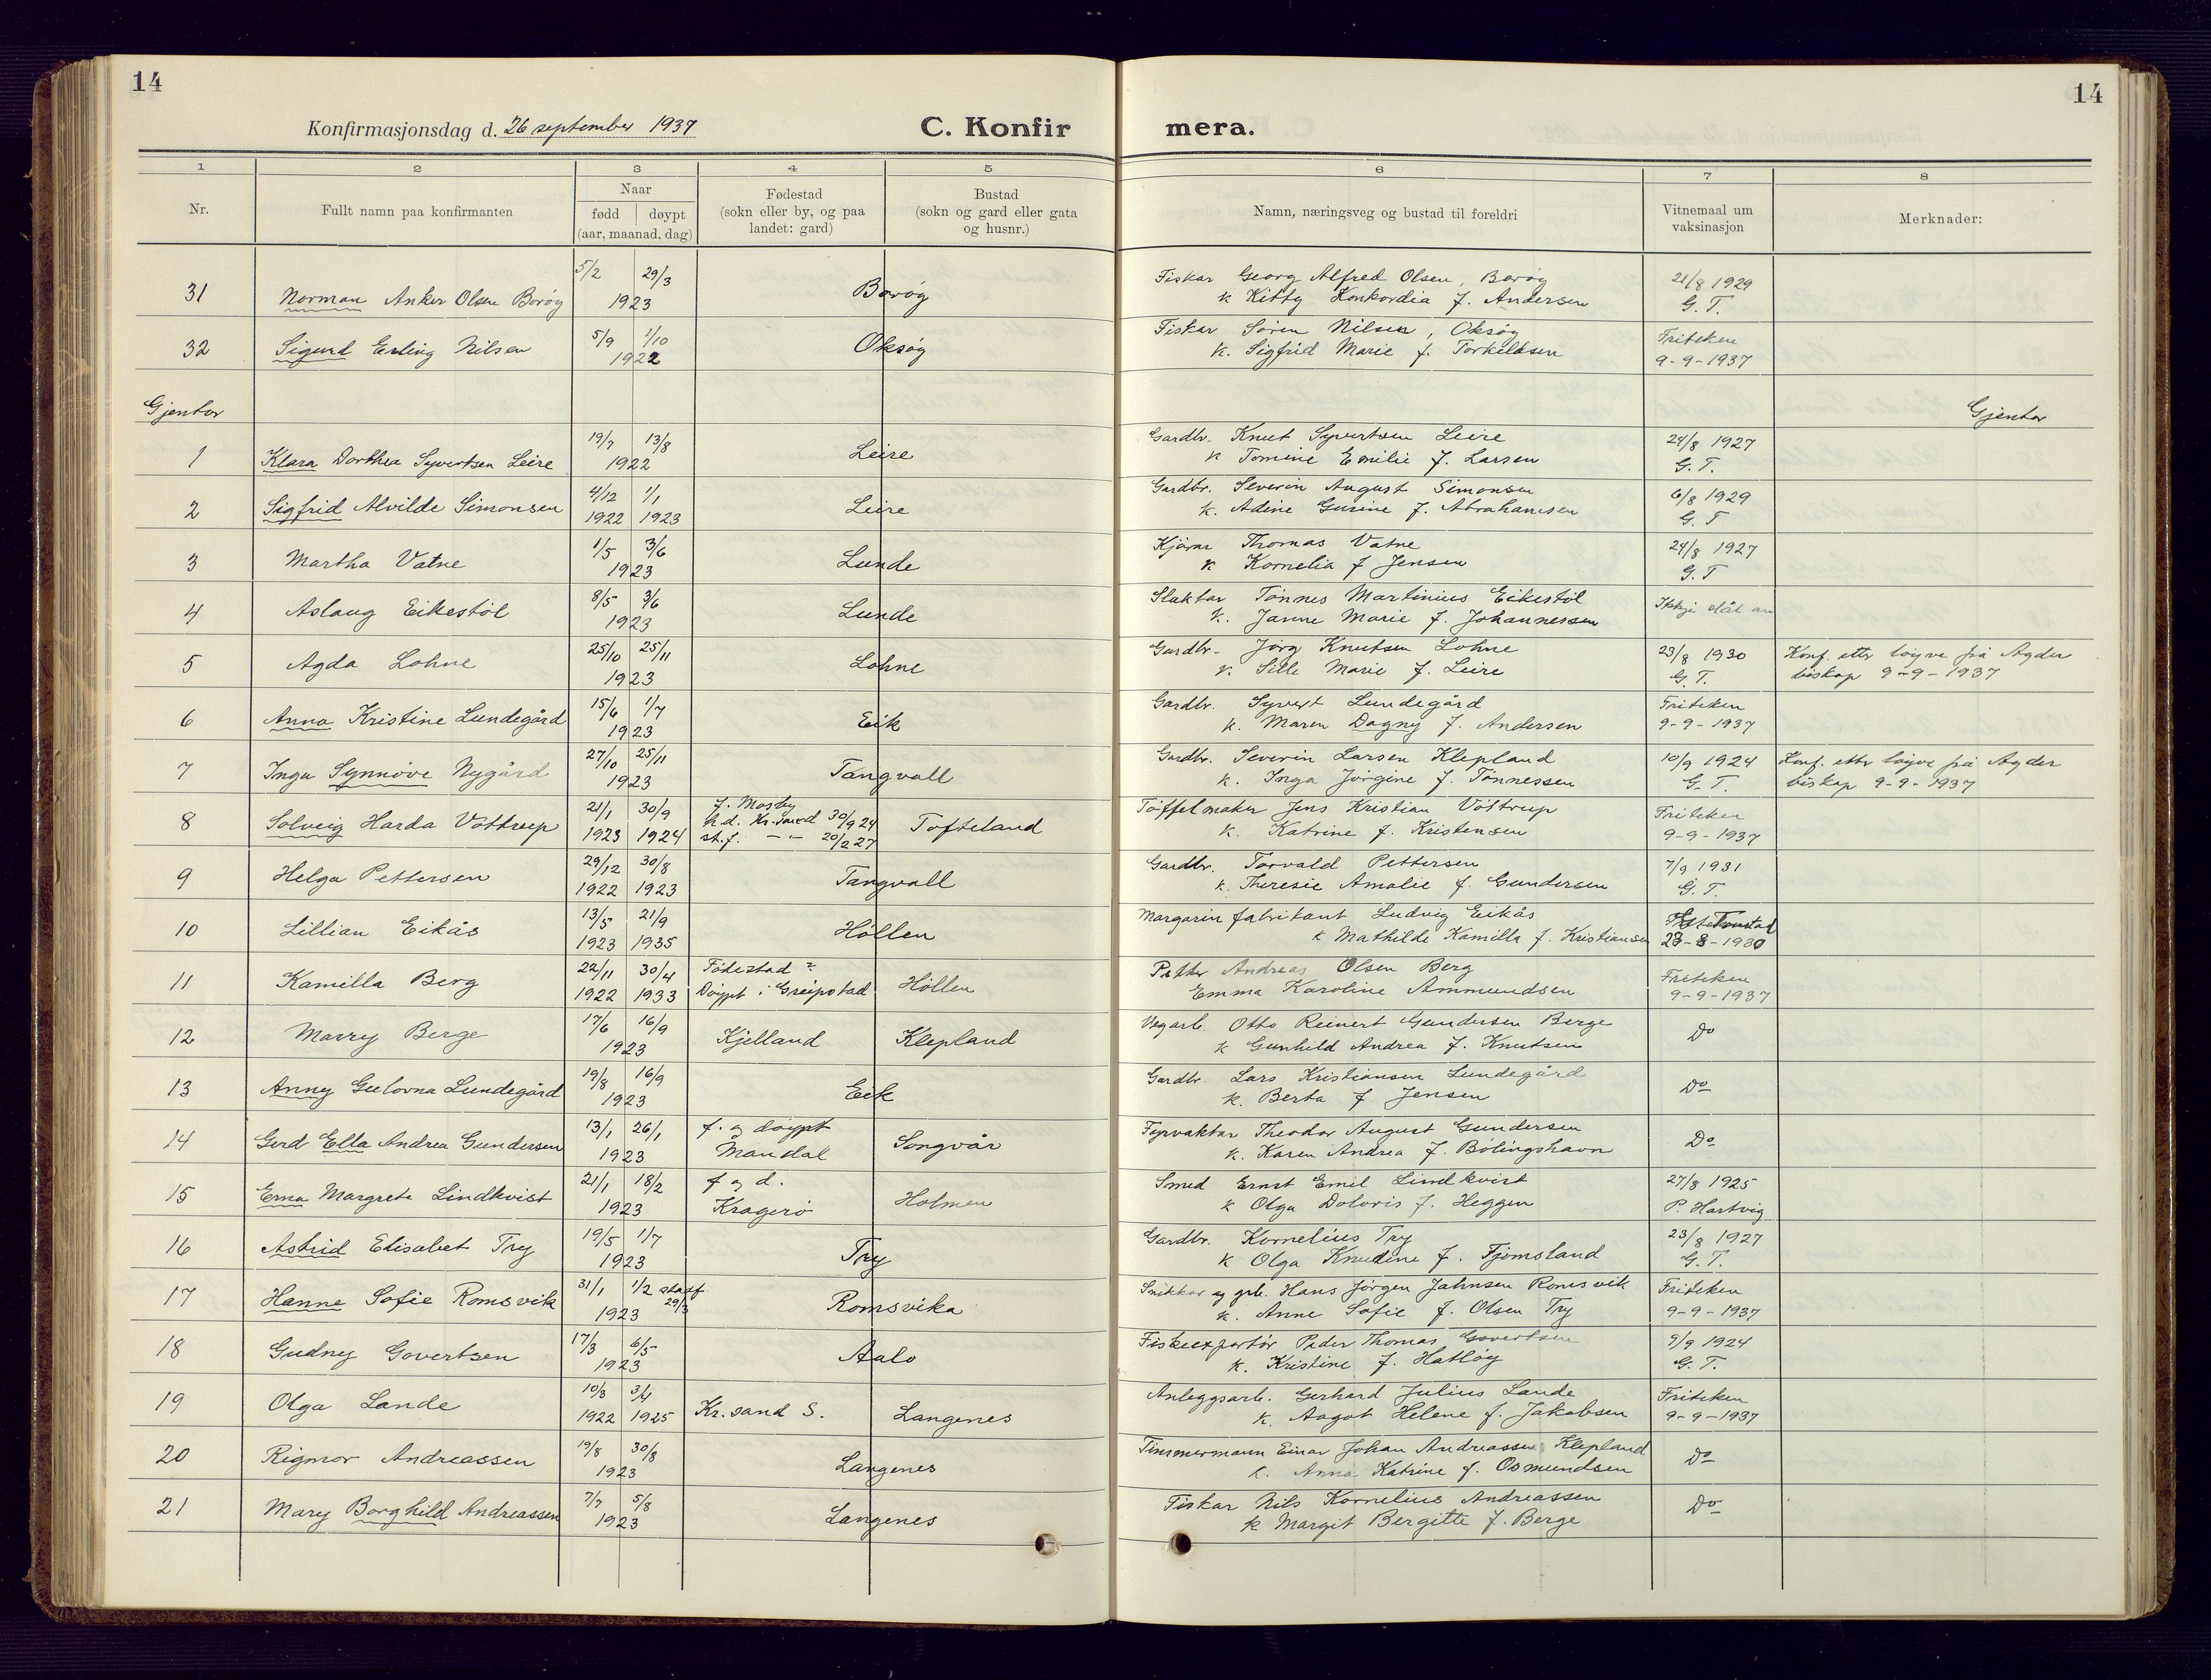 14
14
Konfirmasjonsdag d. 26 september 1937
C. Konfir
mera.
1 2 3 4 5 6 7 8
Nr.
Fullt namn paa konfirmanten
Naar
fødd døypt
(aar, maanad, dag)
Fødestad
(sokn eller by, og paa
landet: gard)
Bustad
(sokn og gard eller gata
og husnr.)
Namn, næringsveg og bustad til foreldri
Vitnemaal um
vaksinasjon
Merknader:
5/2 29/3 Fiskar Georg Alfred Olsen, Borøy 21/8 1929
31 Norman Anker Olsen Borøy 1923 Borøy k Kitty Konkordia f. Andersen G. T.
5/9 1/10 Fiskar Søren Nilsen, Oksøy Friteken
32 Sigurd Erling Nilsen 1922 Oksøy k. Sigfrid Marie f. Torkildsen 9-9-1937
Gjentor Gjentor
19/7 13/8 Gardbr. Knut Syvertsen Leire 24/8 1927
1 Klara Dorthea Syvertsen Leire 1922 Leire k Tomine Emilie f. Larsen G. T.
4/12 1/1 Gardbr. Severin August Simonsen 6/8 1929
2 Sigfrid Alvilde Simonsen 1922 1923 Leire k. Adine Gurine f. Abrahamsen G. T
1/5 3/6 Kjørar Thomas Vatne 24/8 1927
3 Martha Vatne 1923 Lunde k Kornelia f Jensen G. T
8/5 3/6 Slaktar Tønnes Martinius Eikestøl
4 Aslaug Eikestøl 1923 Lunde k. Janne Marie f. Johannessen Ikkje slåt an
25/10 25/11 Gardbr. Jørg Knutsen Lohne 23/8 1930 Konf. etter løyve på Agder
5 Agda Lohne 1923 Lohne k. Sille Marie f. Leire G. T. biskop 9-9-1937
15/6 1/7 Gardbr. Syvert Lundegård Friteken
6 Anna Kristine Lundegård 1923 Eik k. Maren Dagny f. Andersen 9-9-1937
27/10 25/11 Gardbr. Severin Larsen Klepland 10/9 1924 Konf. etter løyve på Agder
7 Inga Synnøve Nygård 1923 Tangvall k. Inga Jørgine f. Tønnessen G. T. biskop 9-9-1937
21/1 30/9 f. Mosby Tøffelmaker Jens Kristian Vöttrup Friteken
8 Solveig Harda Vöttrup 1923 1924 h.d. Kr.sand 30/9 24 Tofteland k. Katrine f. Kristensen 9-9-1937
st.f. — 20/2 27
29/12 30/8 Gardbr. Torvald Pettersen 7/9 1931
9 Helga Pettersen 1922 1923 Tangvall k. Theresie Amalie f. Gundersen G. T.
13/5 21/9 Margarinfabrikant Ludvig Eikås
10 Lillian Eikås 1923 1935 Høllen k Mathilde Kamilla f. Kristiansen 28-8-1930
22/11 30/4 Fødestad? Petter Andreas Olsen Berg Friteken
11 Kamilla Berg 1922 1933 Døypt i Greipstad Høllen Emma Karoline Ammundsen 9-9-1937
17/6 16/9 Vegarb. Otto Reinert Gundersen Berge
12 Marry Berge 1923 Kjelland Klepland k Gunhild Andrea f. Knutsen Do
19/8 16/9 Gardbr. Lars Kristiansen Lundegård
13 Anny Gulovna Lundegård 1923 Eik k. Berta f Jensen Do
13/1 26/1 f. og døypt Fyrvaktar Theodor August Gundersen
14 Gerd Ella Andrea Gundersen 1923 Mandal Songvår k. Karen Andrea f. Bølingshavn Do
21/1 18/2 f og d. Smed Ernst Emil Lindkvist 27/8 1925
15 Erna Margrete Lindkvist 1923 Kragerø Holmen k Olga Doloris f. Heggen P. Hartvig
19/5 1/7 Gardbr. Kornelius Try 23/8 1927
16 Astrid Elisabet Try 1923 Try k Olga Knudine f. Fjømsland G. T.
31/1 1/2 stasf Snikkar og grb. Hans Jørgen Jahnsen Romsvik Friteken
17 Hanne Sofie Romsvik 1923 29/3 Romsvika k. Anne Sofie f. Olsen Try 9-9-1937
17/3 6/5 Fiskeexportør Peder Thomas Govertsen 9/9 1924
18 Gudny Govertsen 1923 Aalo k. Kristine f. Hatløy G. T.
10/3 3/4 Anleggsarb. Gerhard Julius Lande Friteken
19 Olga Lande 1922 1925 Kr.sand S. Langenes k. Aagot Helene f. Jakobsen 9-9-1937
19/8 30/8 Timmermann Einar Johan Andreassen, Klepland
20 Rigmor Andreassen 1923 Langenes k. Anna Katrine f. Osmundsen Do
7/7 5/8 Fiskar Nils Kornelius Andreassen
21 Mary Borghild Andreassen 1923 Langenes k Margit Bergitte f. Berge Do